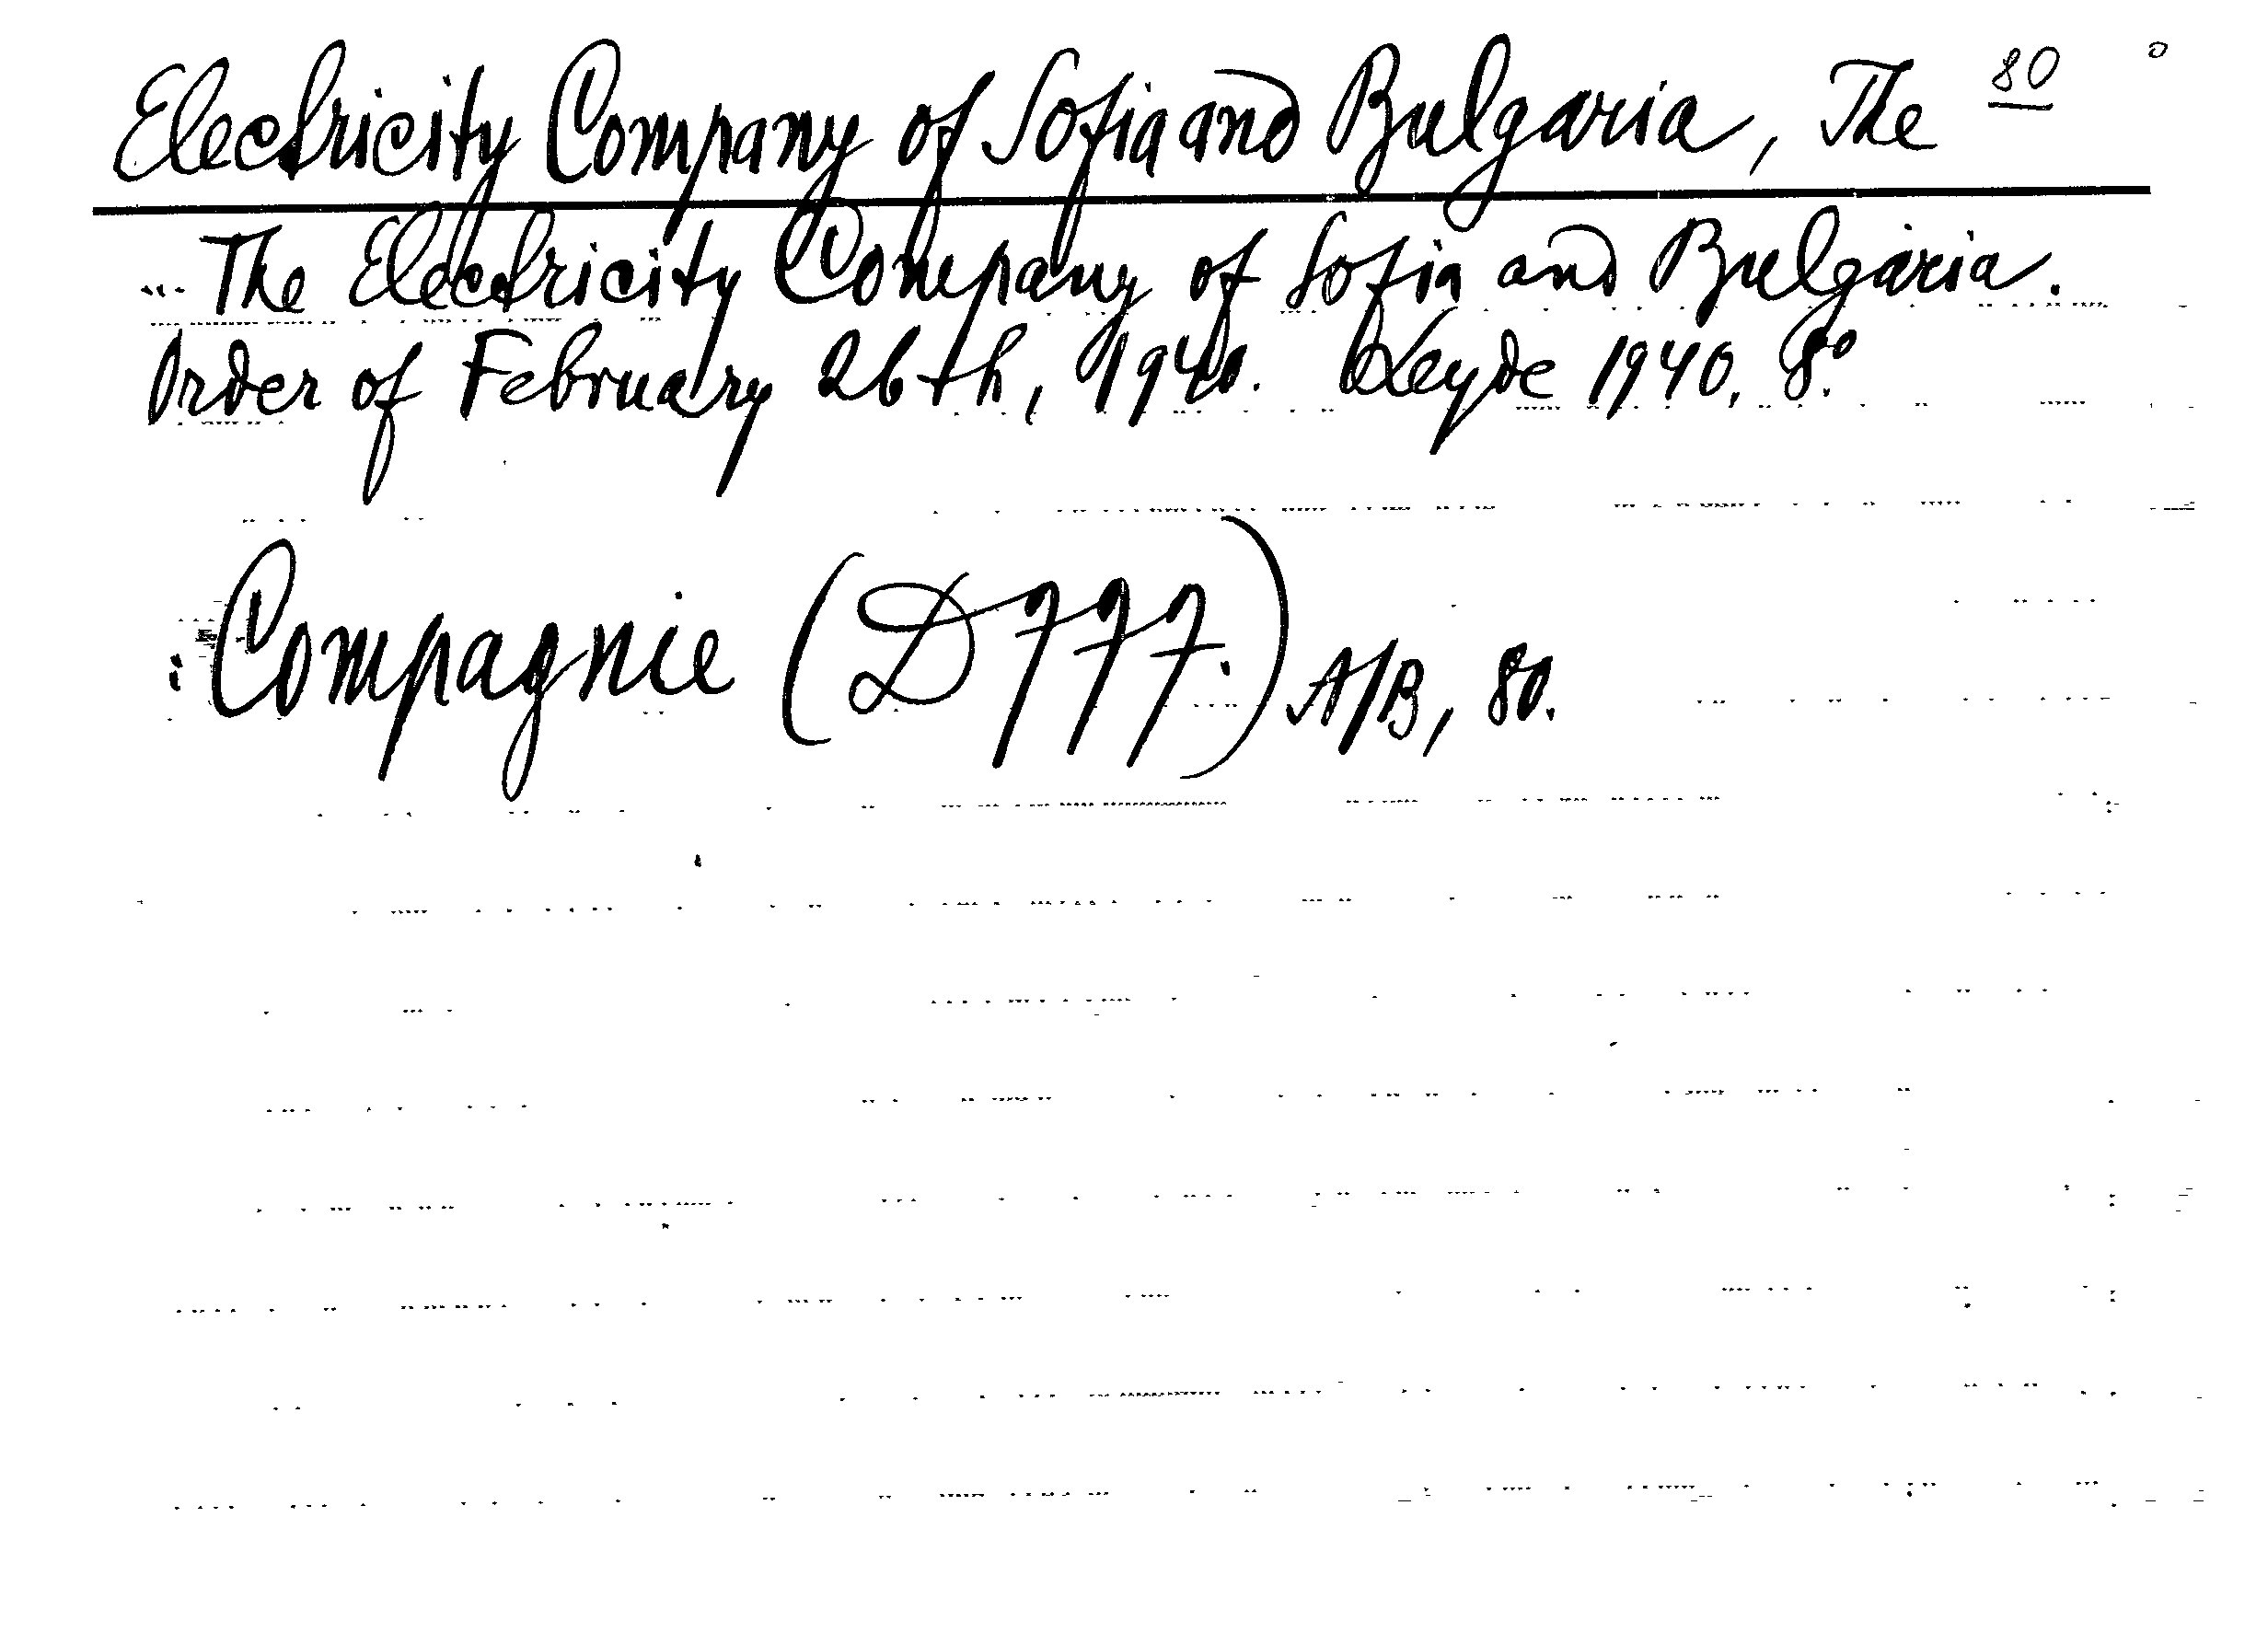 Electricity Company of Sofia and Bulgaria, The 80
The Electricity Company of Sofia and Bulgaria.
Order of February 26th, 1940. Leyde 1940. 8.º
: Compagnie (D 777.) A/B, 80.